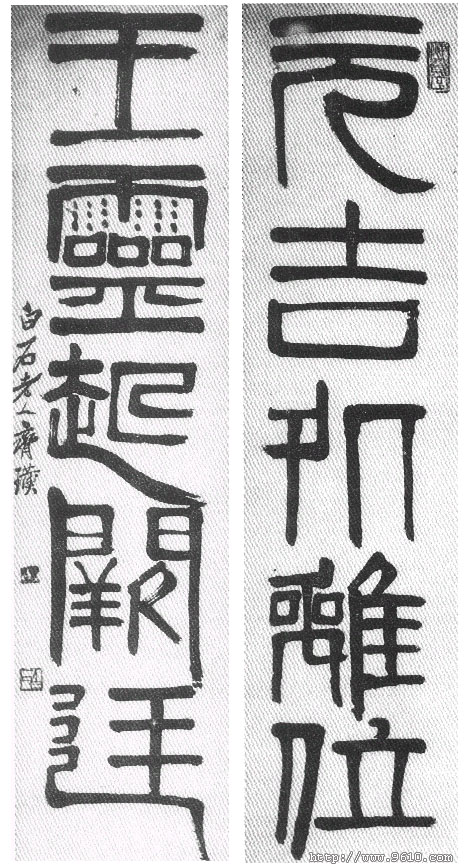 元吉所離位
王靈起闕廷
白石老人齊璜
http://www.9610.com